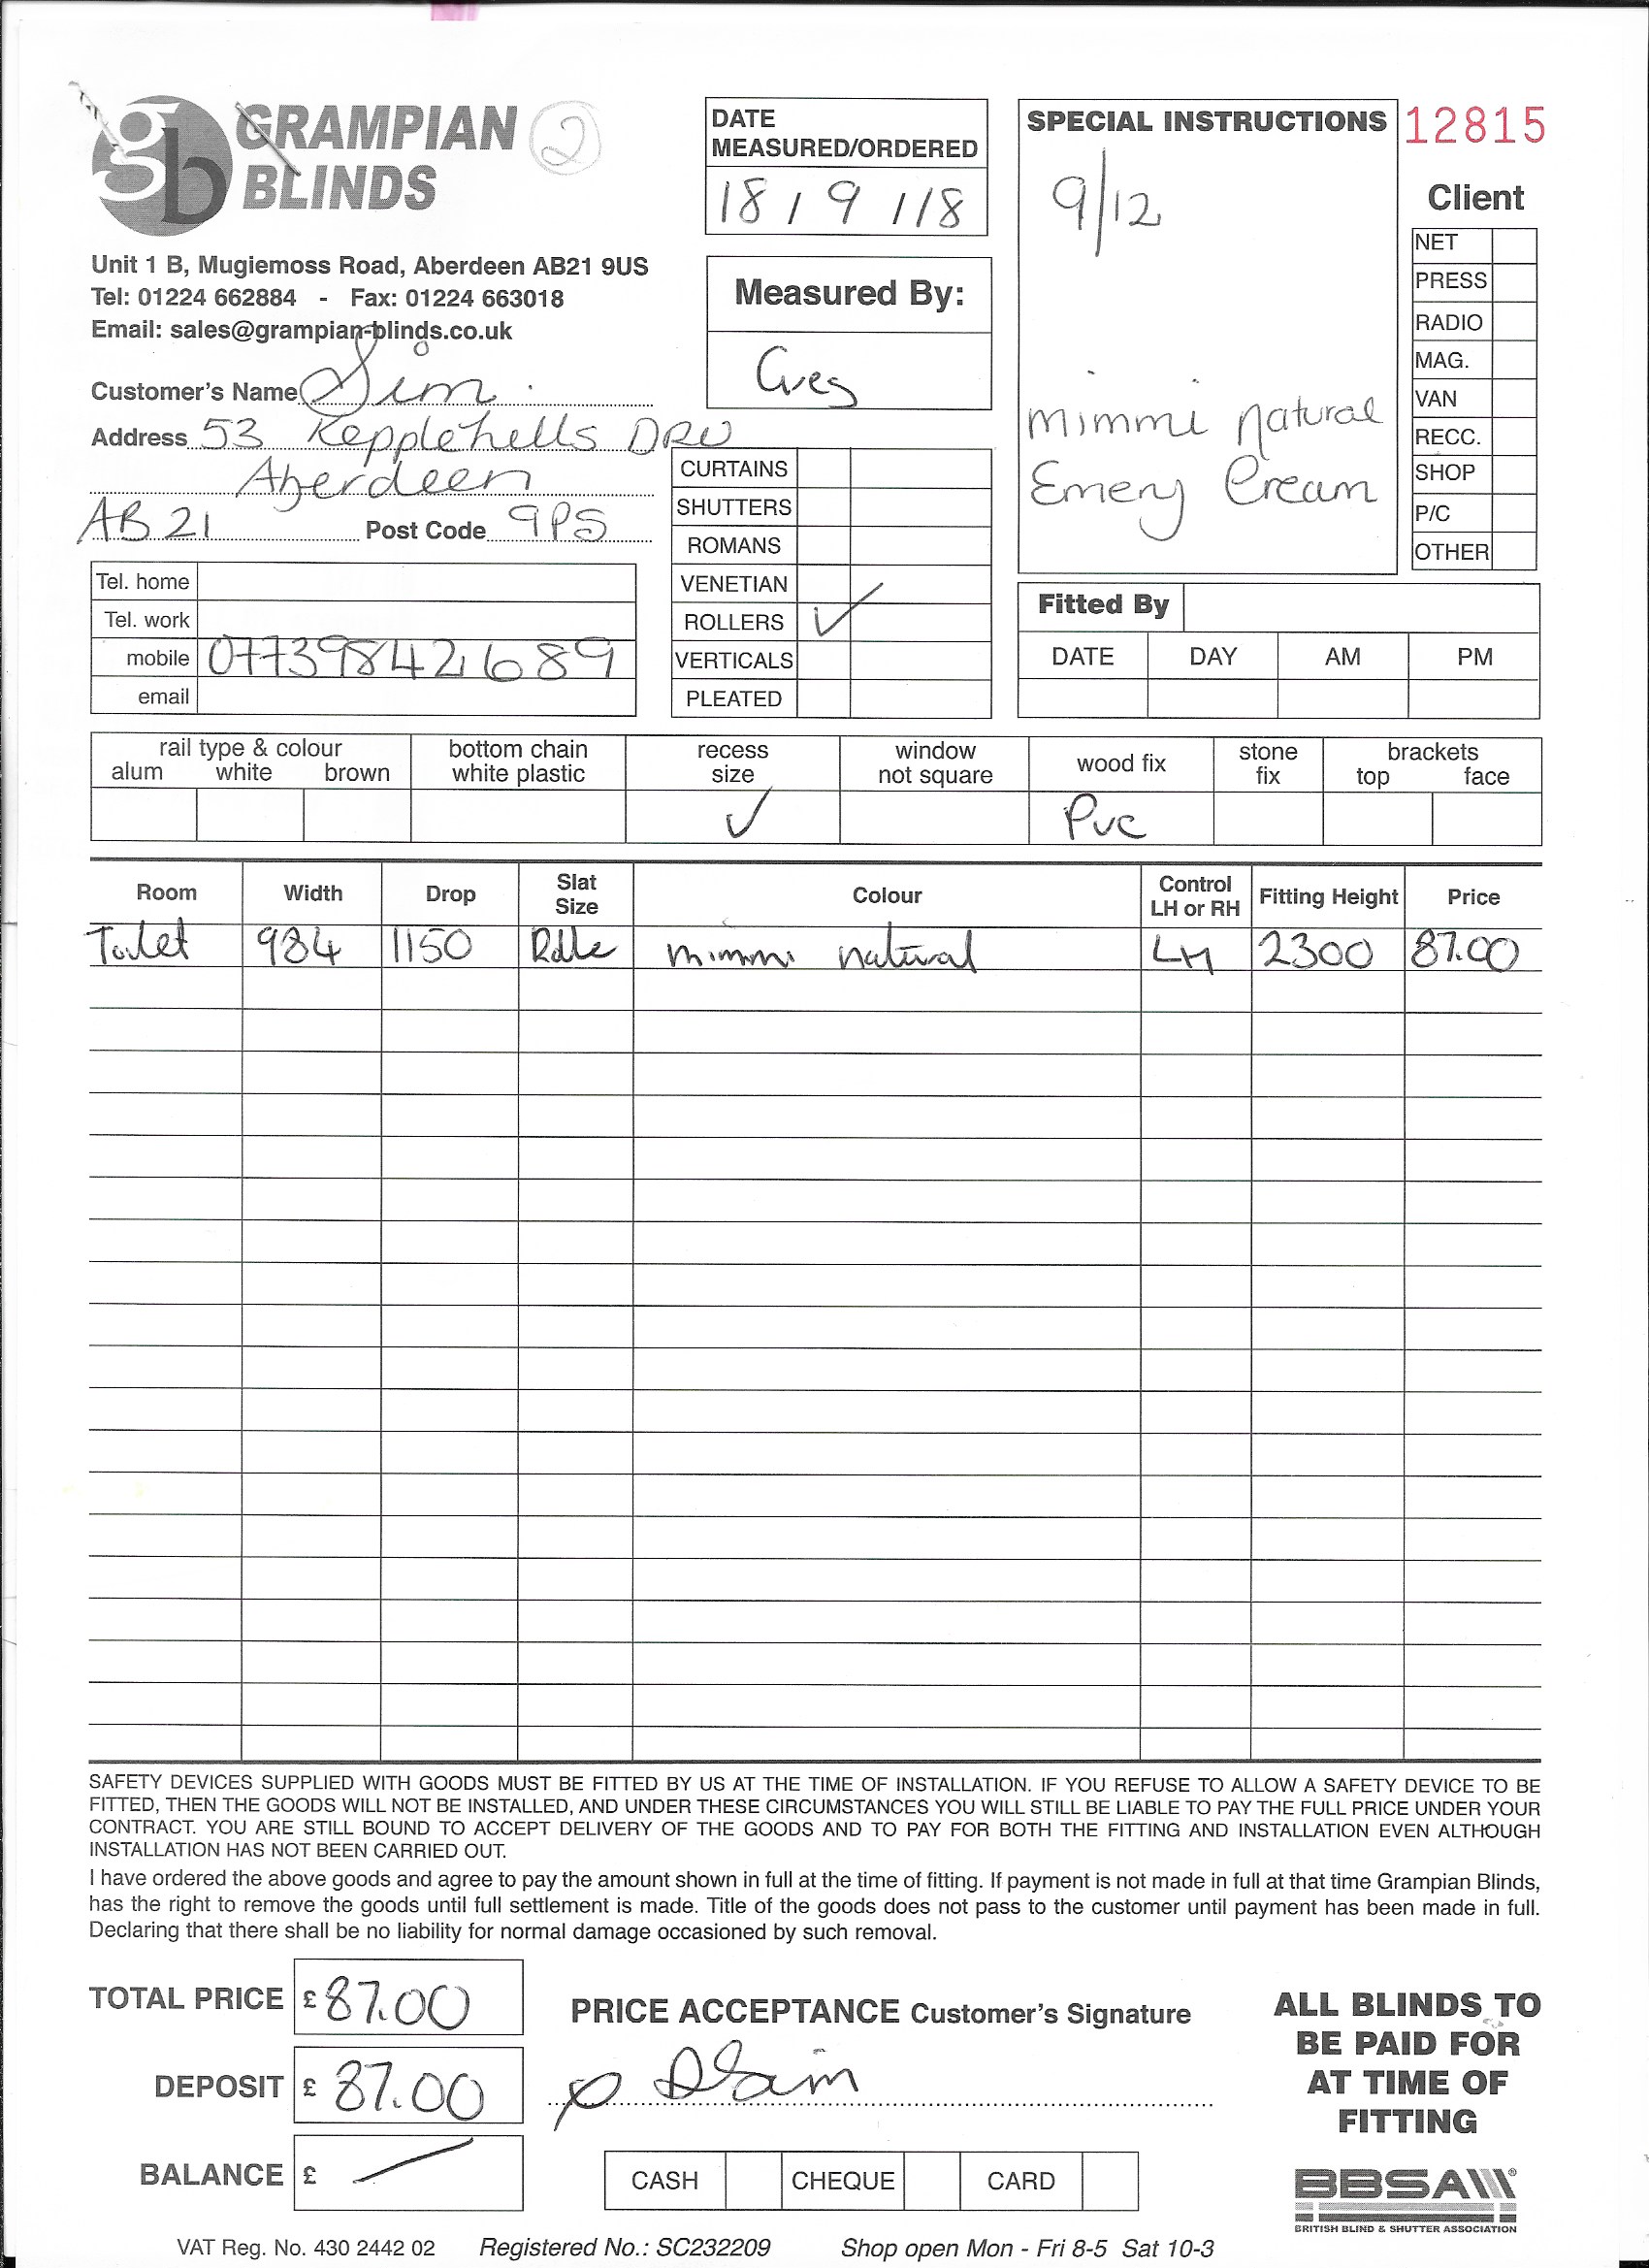 gb GRAMPIAN BLINDS
2
DATE MEASURED/ORDERED
18/9/18
SPECIAL INSTRUCTIONS
9/12
mimmi natural
Emery Cream
12815
Client
NET
PRESS
RADIO
MAG.
VAN
RECC.
SHOP
P/C
OTHER
Unit 1 B, Mugiemoss Road, Aberdeen AB21 9US
Tel: 01224 662884 - Fax: 01224 663018
Email: sales@grampian-blinds.co.uk
Measured By:
Greg
Customer's Name Sim
Address 53 Kepplehills DRV
Aberdeen
AB21 Post Code 9PS
Tel. home
Tel. work
mobile 07739842689
email
CURTAINS
SHUTTERS
ROMANS
VENETIAN
ROLLERS ✓
VERTICALS
PLEATED
Fitted By
DATE DAY AM PM
rail type & colour bottom chain recess window wood fix stone brackets
alum white brown white plastic size not square fix top face
✓ Pvc
Room Width Drop Slat Size Colour Control LH or RH Fitting Height Price
Toilet 984 1150 mimmi natural LH 2300 87.00
SAFETY DEVICES SUPPLIED WITH GOODS MUST BE FITTED BY US AT THE TIME OF INSTALLATION. IF YOU REFUSE TO ALLOW A SAFETY DEVICE TO BE
FITTED, THEN THE GOODS WILL NOT BE INSTALLED, AND UNDER THESE CIRCUMSTANCES YOU WILL STILL BE LIABLE TO PAY THE FULL PRICE UNDER YOUR
CONTRACT. YOU ARE STILL BOUND TO ACCEPT DELIVERY OF THE GOODS AND TO PAY FOR BOTH THE FITTING AND INSTALLATION EVEN ALTHOUGH
INSTALLATION HAS NOT BEEN CARRIED OUT.
I have ordered the above goods and agree to pay the amount shown in full at the time of fitting. If payment is not made in full at that time Grampian Blinds,
has the right to remove the goods until full settlement is made. Title of the goods does not pass to the customer until payment has been made in full.
Declaring that there shall be no liability for normal damage occasioned by such removal.
TOTAL PRICE £ 87.00
DEPOSIT £ 87.00
BALANCE £ /
PRICE ACCEPTANCE Customer's Signature
x D Sim
CASH CHEQUE CARD
ALL BLINDS TO
BE PAID FOR
AT TIME OF
FITTING
BBSA
BRITISH BLIND & SHUTTER ASSOCIATION
VAT Reg. No. 430 2442 02 Registered No.: SC232209 Shop open Mon - Fri 8-5 Sat 10-3